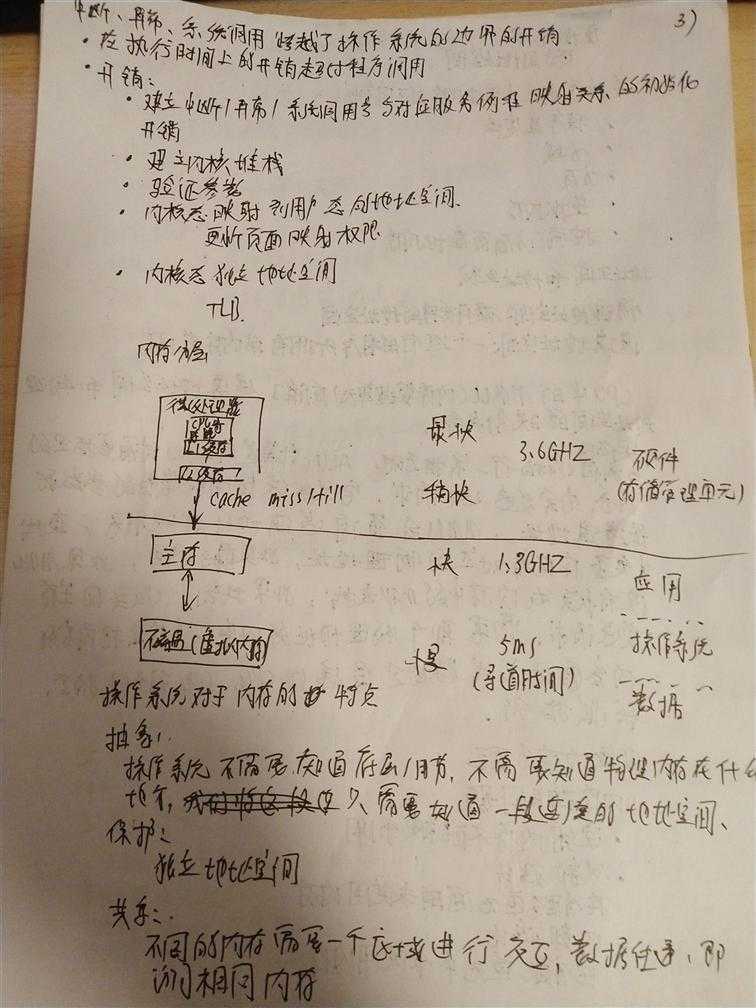 3)
中断、异常、系统调用 跨越了操作系统的边界的开销
• 在执行时间上的开销超过程序调用
• 开销:
• 建立中断/异常/系统调用号与对应服务例程映射关系的初始化
开销
• 建立内核堆栈
• 验证参数
• 内核态映射到用户态的地址空间.
更新页面映射权限
• 内核态独立地址空间
TLB.
内存分层
微处理器
CPU
L1缓存
L2缓存
最快 3.6GHZ 硬件
稍快 (存储管理单元)
cache miss/
主存 快 1.3GHZ 应用
磁盘(虚拟内存) 慢 5ms 操作系统
(寻道时间) 数据
操作系统对于内存的 特点
抽象:
操作系统不需要知道底层细节, 不需要知道物理内存在什么
地方, 只需要知道一段连续的地址空间、
保护:
独立地址空间
共享:
不同的内存需要一个区域进行交互, 数据传递、即
访问相同内存